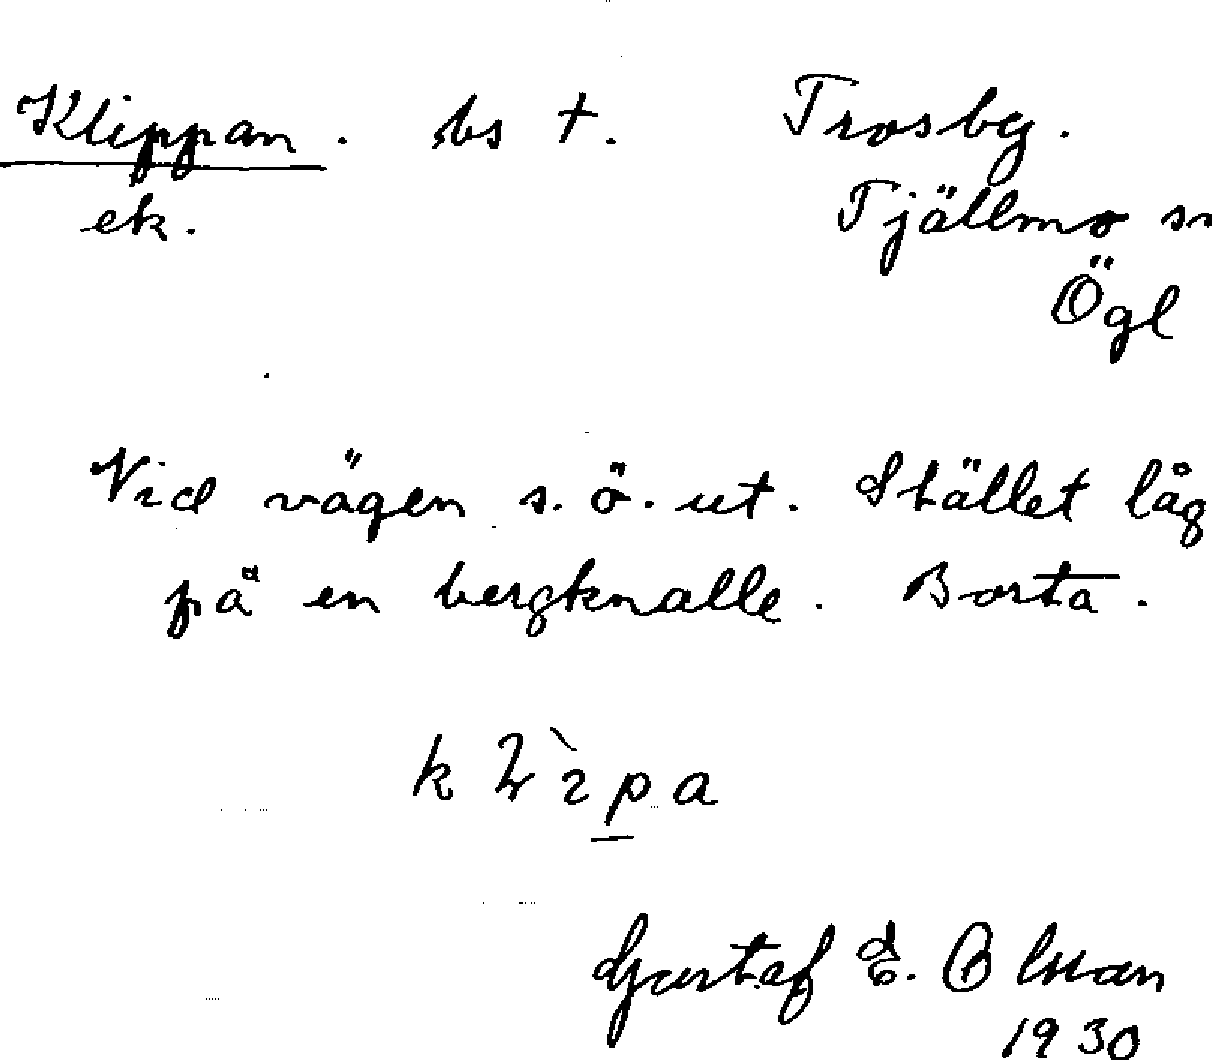 Klippan. bs †. Trosby.
ek. Tjällmo sn
Ögl
Vid vägen s.ö. ut. Stället låg
på en bergknalle. Borta.
Gustaf E. Olman
1930